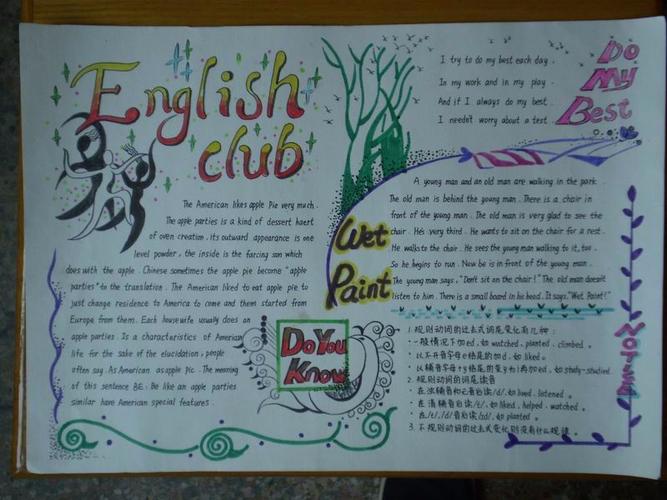 English
club
The American likes apple Pie very much.
The apple parties is a kind of dessert haert
of oven creation, its outward appearance is one
level powder, the inside is the farcing son which
does with the apple. Chinese sometimes the apple pie become "apple
parties" to the translation. The American liked to eat apple pie to
just change residence to America to come and them started from
Europe from them. Each housewife usually does an
apple parties. Is a characteristics of American
life for the sake of the elucidation, people
often say. As American as apple pic. The meaning
of this sentence BE. Be like an apple parties
similar have American special features.
Do You
Know
I try to do my best each day.
In my work and in my play.
And if I always do my best.
I needn't worry about a test.
Do
My
Best
Wet
Paint
A young man and an old man are walking in the park
The old man is behind the young man. There is a chair in
front of the young man. The old man is very glad to see the
chair. He's very third. He wants to sit on the chair for a rest.
He walks to the chair. He sees the young man walking to it, too.
So he begins to run. Now be in front of the young man.
The young man says, "Don't sit on the chair!" The old man doesn't
listen to him. There is a small board in his head. It says, "Wet Paint!"
1. 规则动词的过去式词尾变化有几种:
一般情况下加ed, 如 watched, planted, climbed.
以不发音字母e结尾的加d, 如 liked.
以辅音字母+y结尾的变y为i再加ed, 如 study-studied
2. 规则动词的词尾读音
在浊辅音和元音后读/d/, 如 lived, listened.
在清辅音后读/t/, 如 liked, helped, watched.
在/t/, /d/音后读/id/, 如 planted.
3. 不规则动词的过去式变化则没有什么规律.